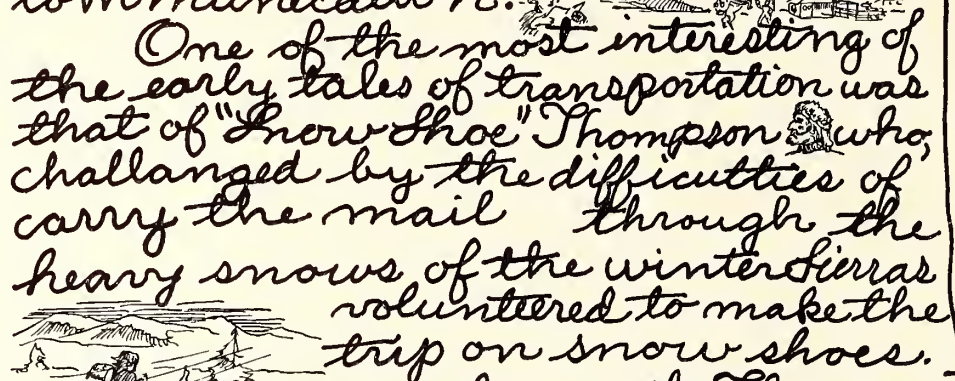 communication.
One of the most interesting of
the early tales of transportation was
that of "Snow-Shoe" Thompson who,
challanged by the difficutties of
carry the mail through the
heavy snows of the winter Sierras
volunteered to make the
trip on snow shoes.